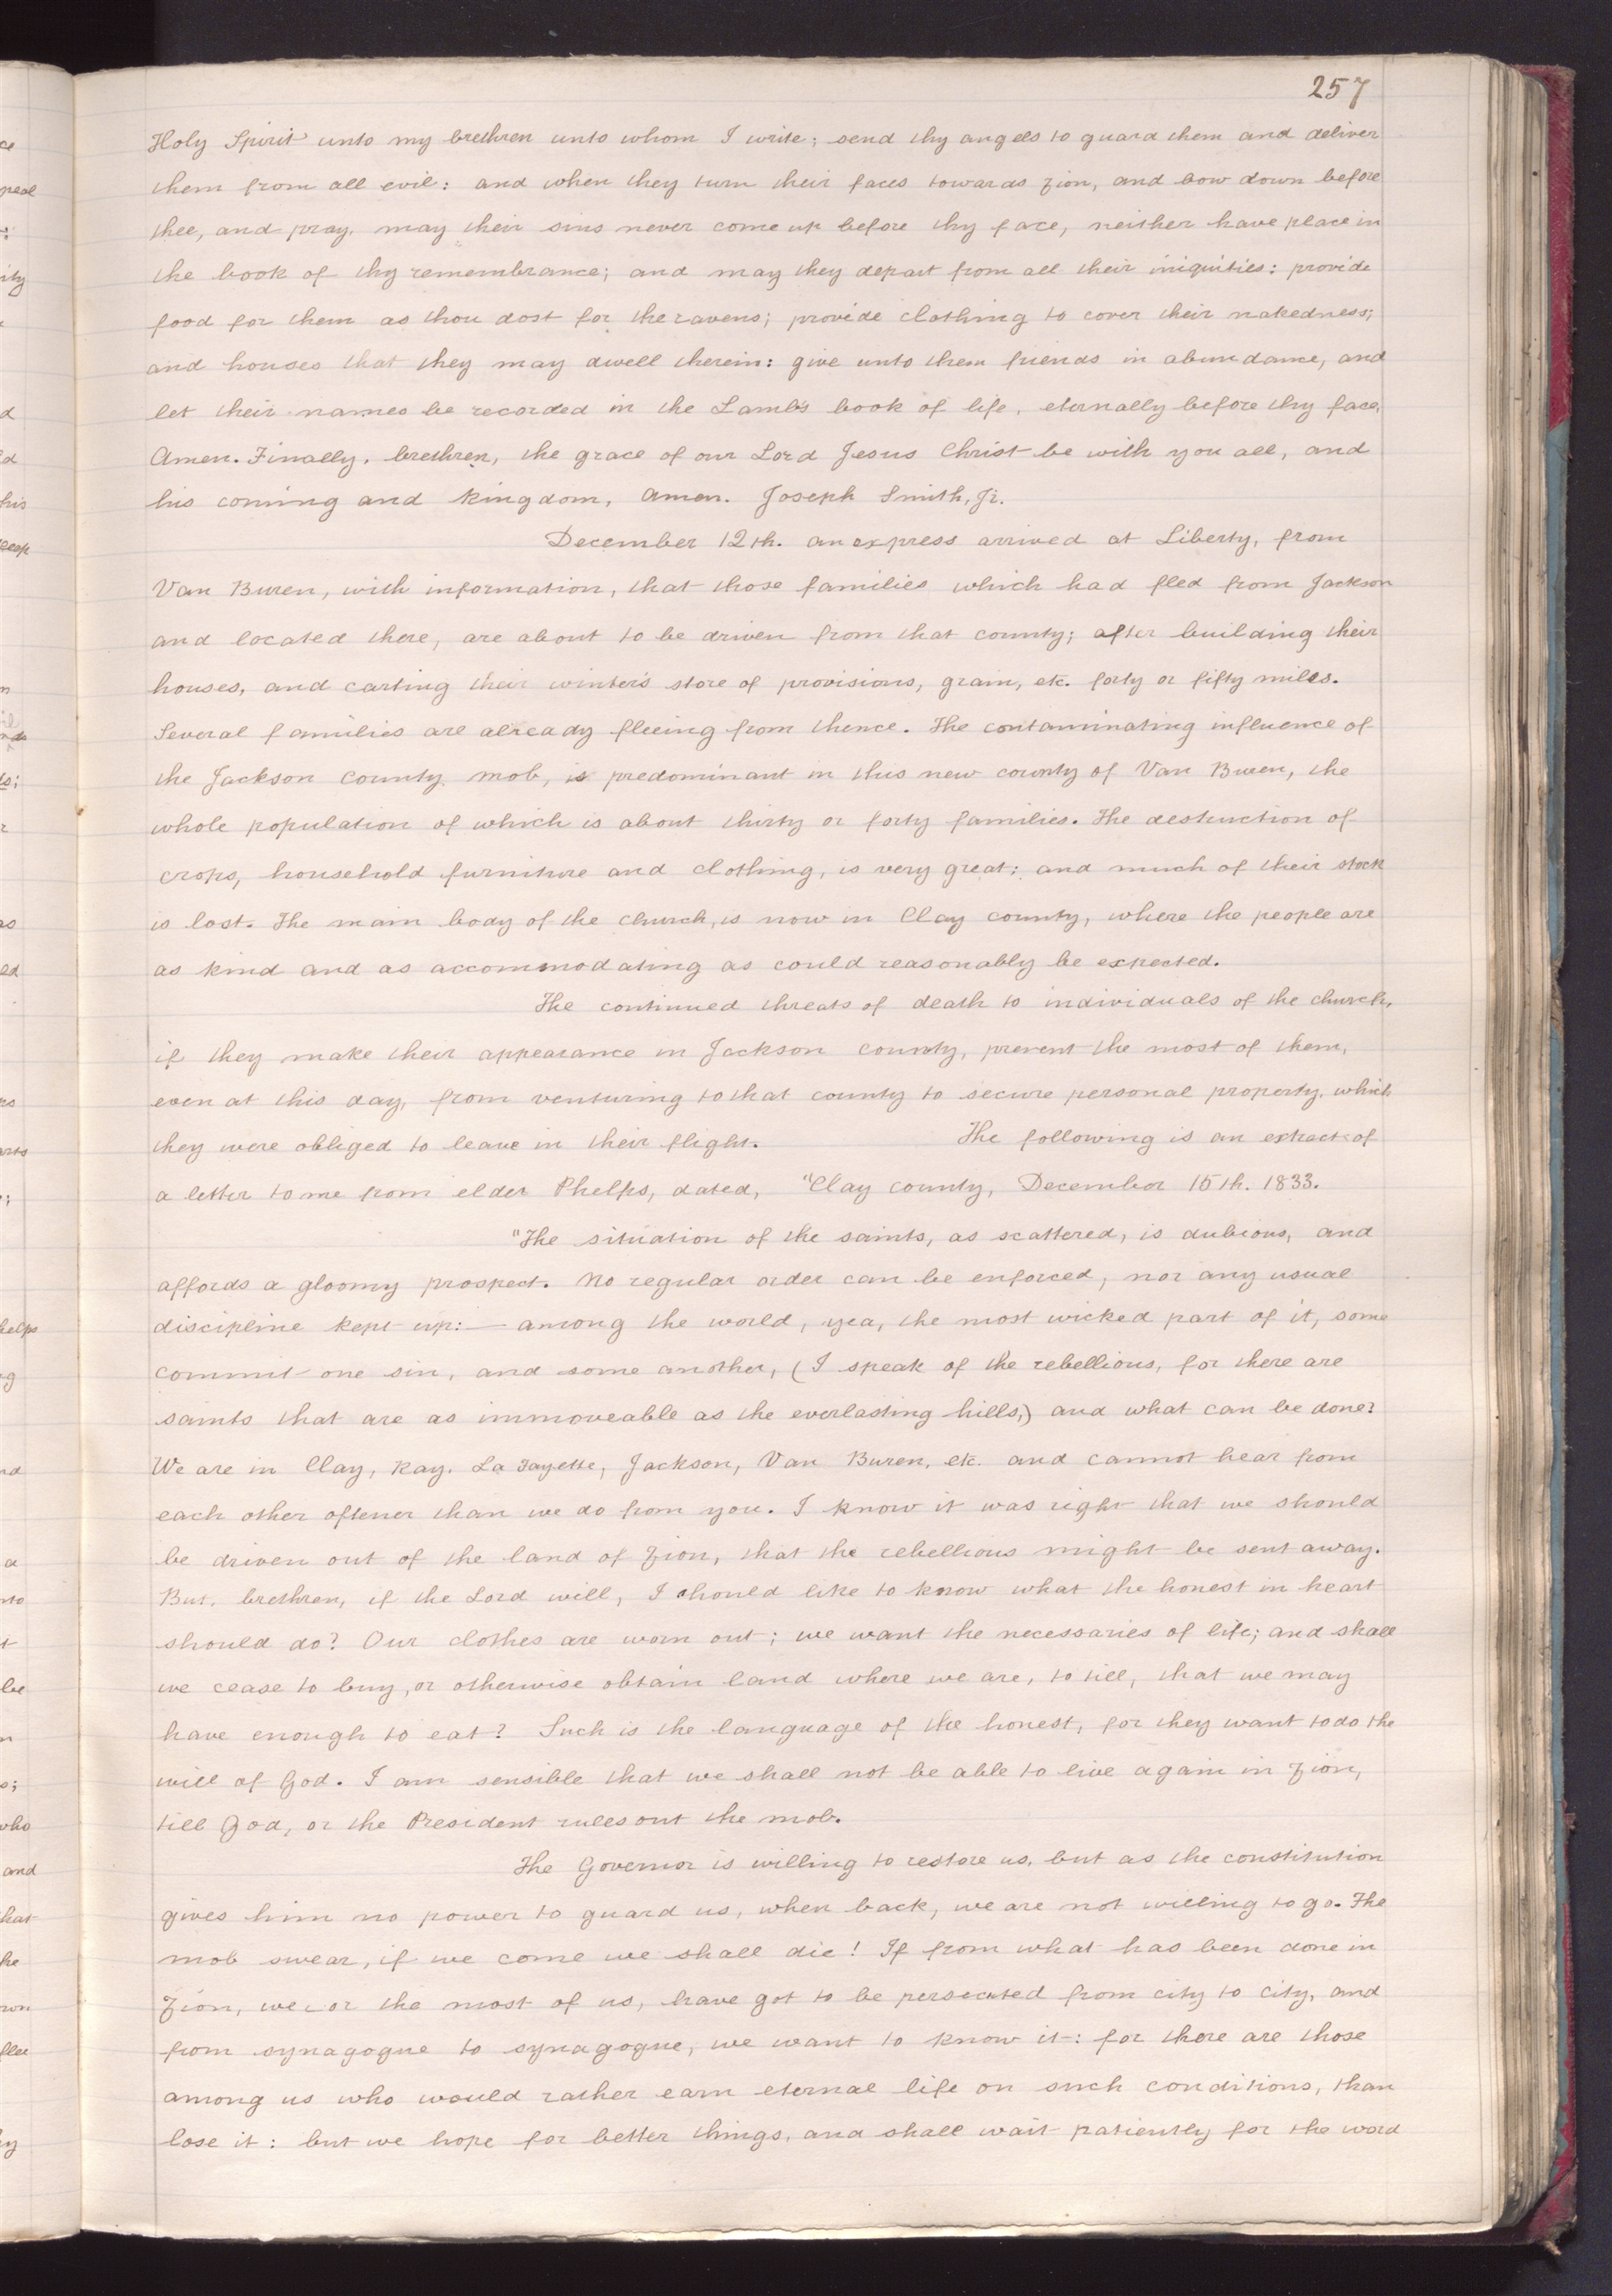 257
Holy Spirit unto my brethren unto whom I write; send thy angels to guard them and deliver
them from all evil: and when they turn their faces towards Zion, and bow down before
thee, and pray, may their sins never come up before thy face, neither have place in
the book of thy remembrance; and may they depart from all their iniquities: provide
food for them as thou dost for the ravens; provide clothing to cover their nakedness;
and houses that they may dwell therein: give unto them friends in abundance, and
let their names be recorded in the Lamb's book of life, eternally before thy face,
Amen. Finally, brethren, the grace of our Lord Jesus Christ be with you all, and
his coming and kingdom, Amen. Joseph Smith, Jr.
December 12th. an express arrived at Liberty, from
Van Buren, with information, that those families which had fled from Jackson
and located there, are about to be driven from that county; after building their
houses, and carting their winter's store of provisions, grain, etc. forty or fifty miles.
Several families are already fleeing from thence. The contaminating influence of
the Jackson county mob, is predominant in this new county of Van Buren, the
whole population of which is about thirty or forty families. The destruction of
crops, household furniture and clothing, is very great; and much of their stock
is lost. The main body of the church, is now in Clay county, where the people are
as kind and as accommodating as could reasonably be expected.
The continued threats of death to individuals of the church,
if they make their appearance in Jackson county, prevent the most of them,
even at this day, from venturing to that county to secure personal property, which
they were obliged to leave in their flight. The following is an extract of
a letter to me from elder Phelps, dated, "Clay county, December 15th. 1833.
"The situation of the saints, as scattered, is dubious, and
affords a gloomy prospect. No regular order can be enforced, nor any usual
discipline kept up:— among the world, yea, the most wicked part of it, some
commit one sin, and some another, (I speak of the rebellious, for there are
saints that are as immoveable as the everlasting hills,) and what can be done?
We are in Clay, Ray, La Fayette, Jackson, Van Buren, etc. and cannot hear from
each other oftener than we do from you. I know it was right that we should
be driven out of the land of Zion, that the rebellious might be sent away.
But, brethren, if the Lord will, I should like to know what the honest in heart
should do? Our clothes are worn out; we want the necessaries of life; and shall
we cease to buy, or otherwise obtain land where we are, to till, that we may
have enough to eat? Such is the language of the honest, for they want to do the
will of God. I am sensible that we shall not be able to live again in Zion,
till God, or the President rules out the mob.
The Governor is willing to restore us, but as the constitution
gives him no power to guard us, when back, we are not willing to go. The
mob swear, if we come we shall die! If from what has been done in
Zion, we, or the most of us, have got to be persecuted from city to city, and
from synagogue to synagogue, we want to know it: for there are those
among us who would rather earn eternal life on such conditions, than
lose it: but we hope for better things, and shall wait patiently for the word